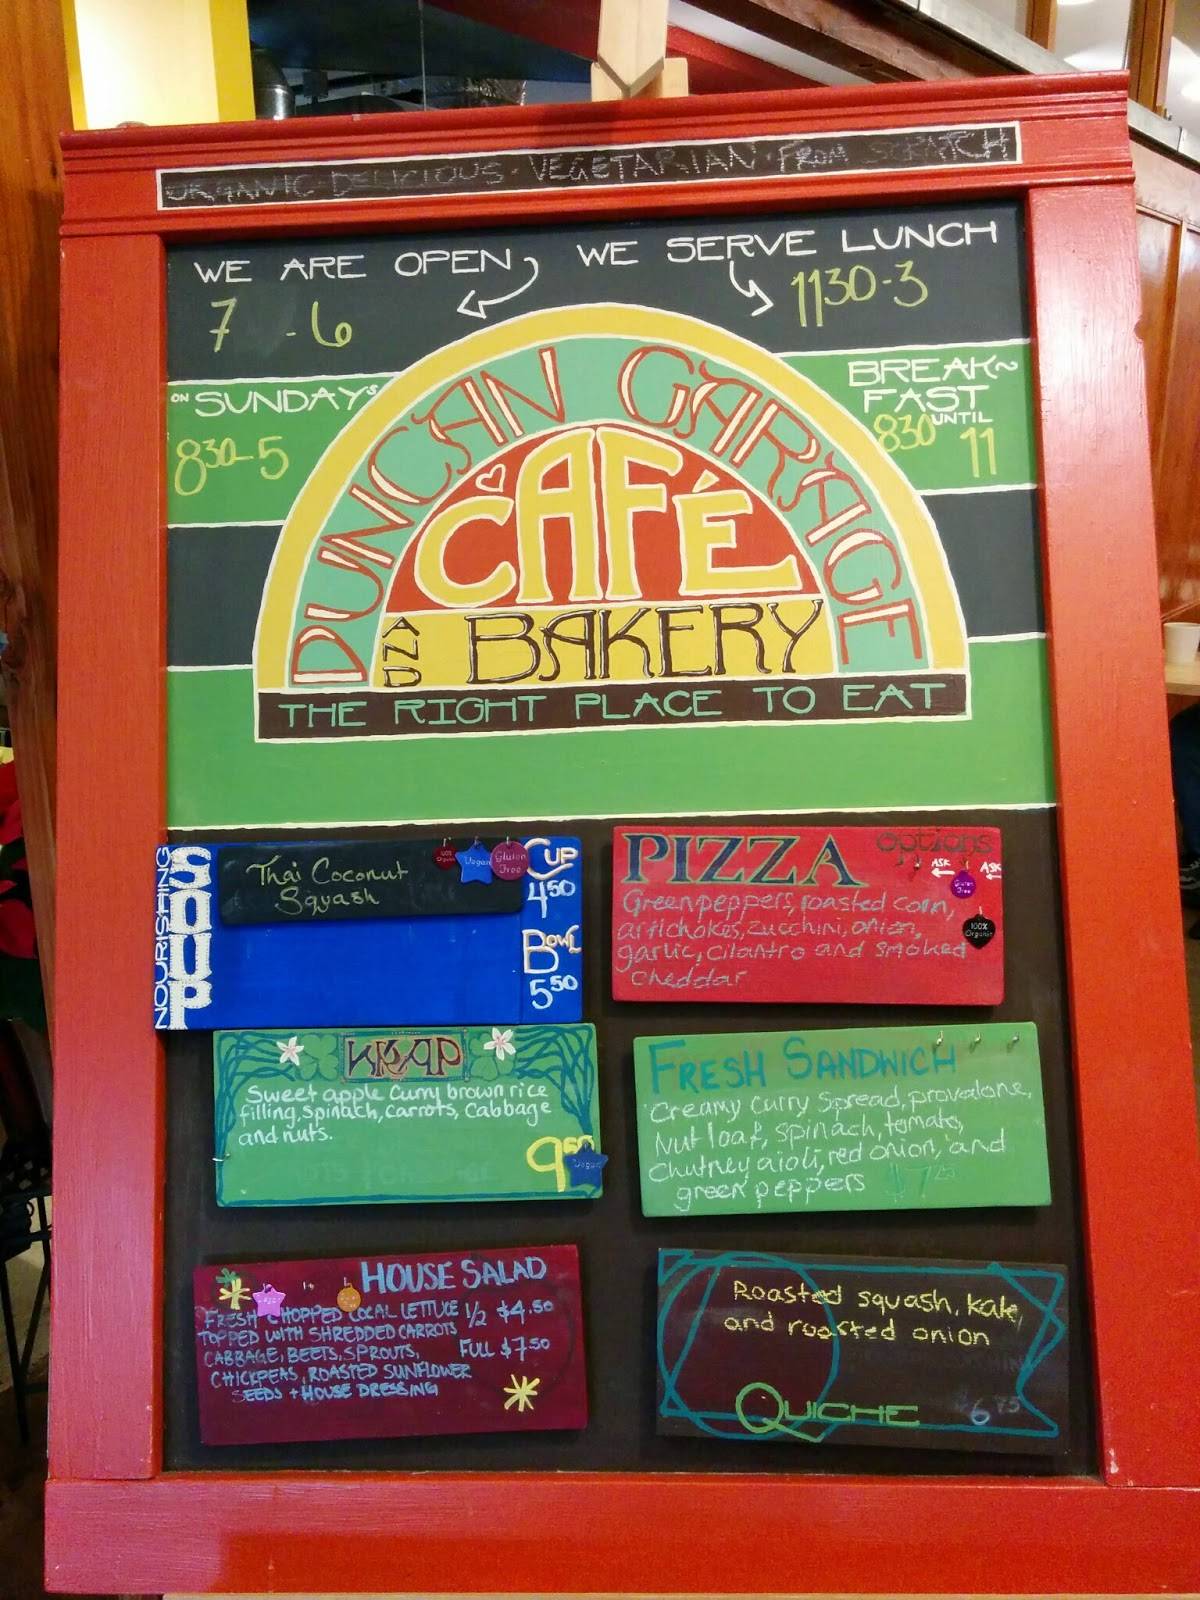 ORGANIC · DELICIOUS · VEGETARIAN · FROM SCRATCH
WE ARE OPEN
7 - 6
WE SERVE LUNCH
1130-3
ON SUNDAYS
830-5
BREAK~
FAST
UNTIL
830 11
DUNCAN GARAGE
CAFÉ
AND BAKERY
THE RIGHT PLACE TO EAT
NOURISHING
SOUP
Thai Coconut
Squash
100% Organic
Vegan
Gluten Free
CUP
4 50
BOWL
5 50
PIZZA options
ASK
ASK
Gluten Free
100% Organic
Green peppers, roasted corn,
artichokes, zucchini, onion,
garlic, cilantro and smoked
cheddar
KRAP
Sweet apple curry brown rice
filling, spinach, carrots, cabbage
and nuts.
9 50
Vegan
FRESH SANDWICH
Creamy curry spread, provalone,
Nut loaf, spinach, tomato,
chutney aioli, red onion, and
green peppers $7 25
HOUSE SALAD
FRESH CHOPPED LOCAL LETTUCE 1/2 $4.50
TOPPED WITH SHREDDED CARROTS
CABBAGE, BEETS, SPROUTS, FULL $7 50
CHICKPEAS, ROASTED SUNFLOWER
SEEDS + HOUSE DRESSING
Roasted squash, kale,
and roasted onion
QUICHE $6 75